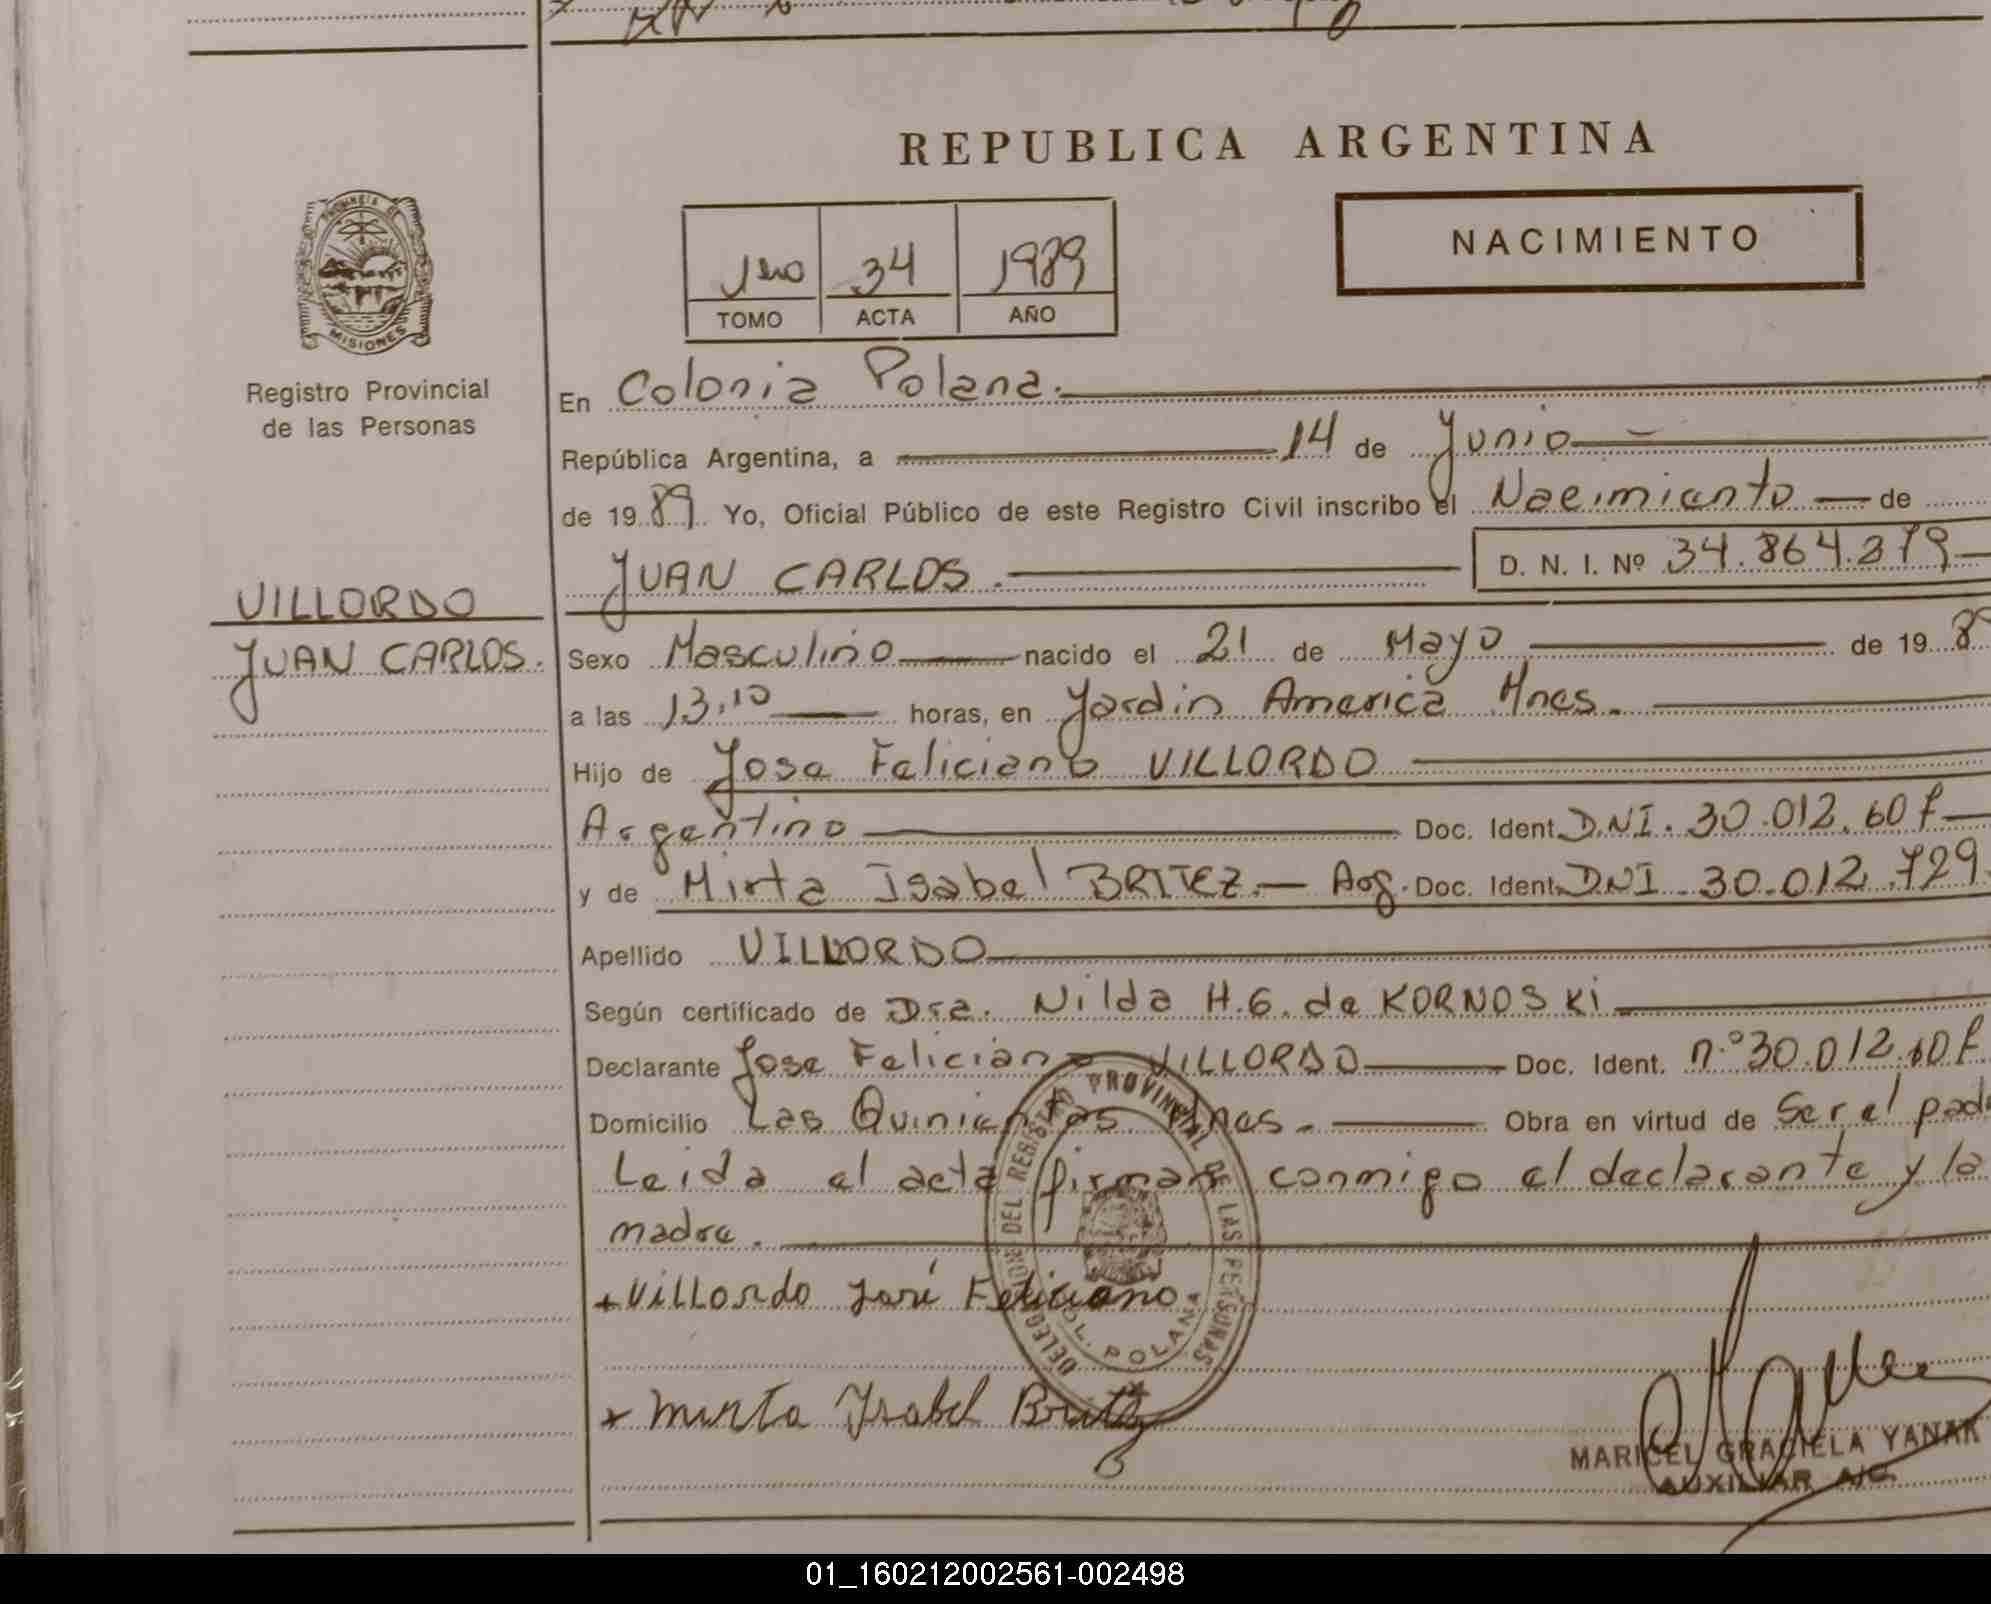 REPUBLICA ARGENTINA
NACIMIENTO
1ro 34 1989
TOMO ACTA AÑO
PROVINCIA DE
MISIONES
Registro Provincial
de las Personas
En Colonia Polana.
República Argentina, a 14 de Junio
de 1989. Yo, Oficial Público de este Registro Civil inscribo el Nacimiento de
JUAN CARLOS. D. N. I. Nº 34.864.379
VILLORDO
JUAN CARLOS.
Sexo Masculino nacido el 21 de Mayo de 198
a las 13,10 horas, en Jardin America Mnes.
Hijo de Jose Feliciano VILLORDO
Argentino Doc. Ident. DNI. 30.012.607
y de Mirta Isabel BRITEZ. Arg. Doc. Ident. DNI. 30.012.729
Apellido VILLORDO
Según certificado de Dra. Nilda H.G. de KORNOSKI
Declarante Jose Feliciano VILLORDO Doc. Ident. nº 30.012.607
Domicilio Las Quinientas Mnes. Obra en virtud de Ser el pad
Leida el acta firman conmigo el declarante y la
madre.
DEL REGISTRO PROVINCIAL DE LAS PERSONAS
COL. POLANA
+ Villordo José Feliciano
+ Mirta Ysabel Britez
MARICEL GRACIELA YANAK
AUXILIAR
01_160212002561-002498